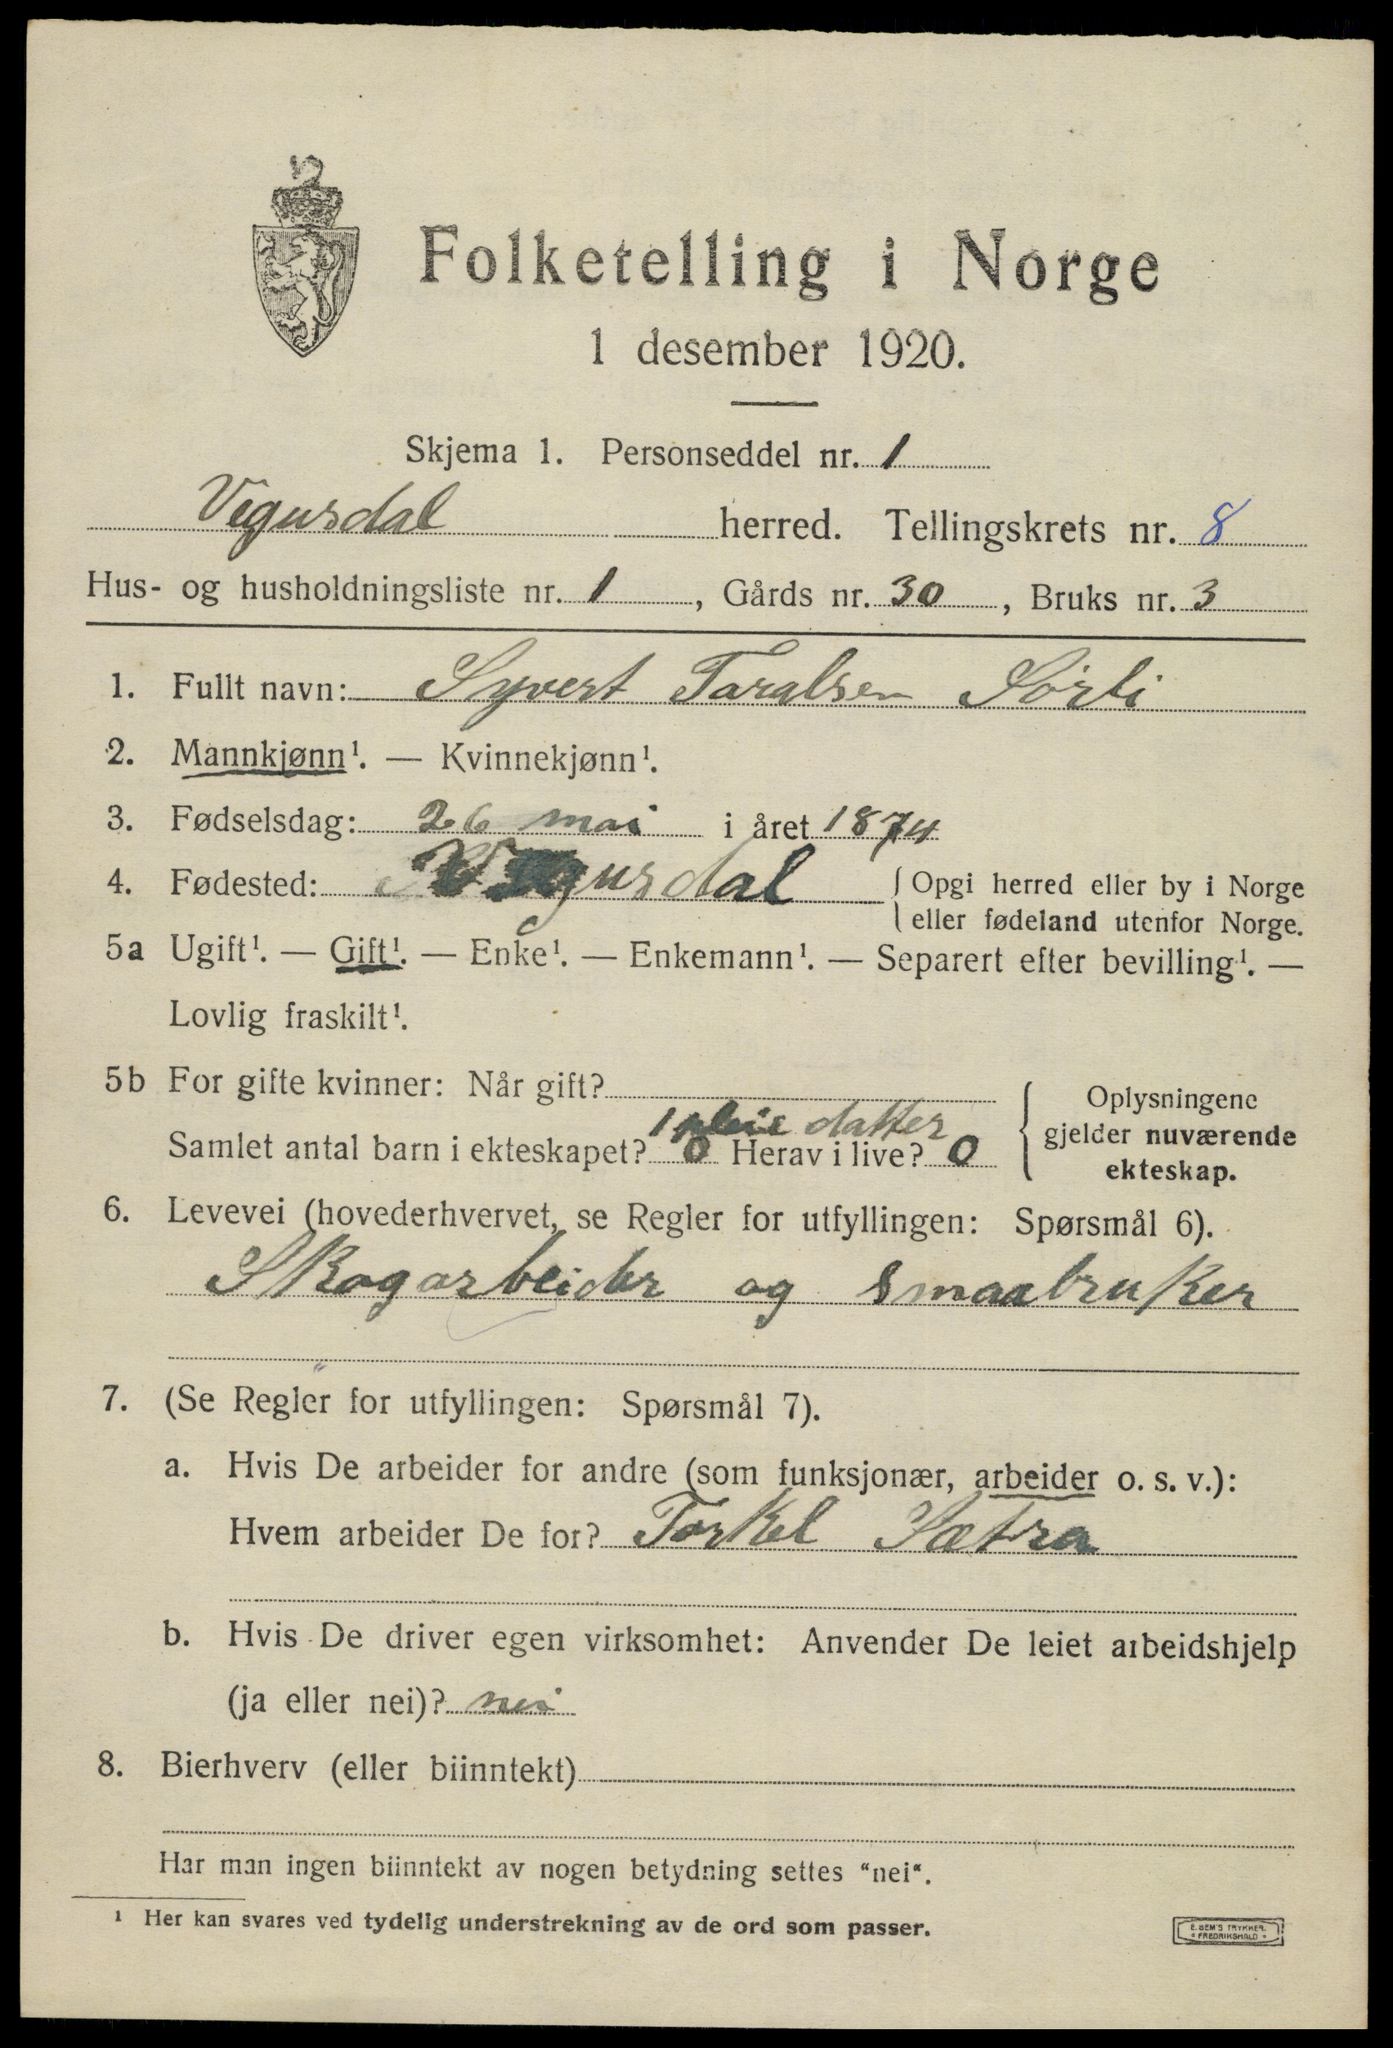 Folketelling i Norge
1 desember 1920.
Skjema 1. Personseddel nr. 1
Vegusdal herred. Tellingskrets nr. 8
Hus- og husholdningsliste nr. 1, Gårds nr. 30, Bruks nr. 3
1. Fullt navn: Syvert Taralsen Sörli
2. Mannkjønn¹. — Kvinnekjønn¹.
3. Fødselsdag: 26 mai i året 1874
4. Fødested: Vegusdal { Opgi herred eller by i Norge
eller fødeland utenfor Norge.
5a Ugift¹. — Gift¹. — Enke¹. — Enkemann¹. — Separert efter bevilling¹. —
Lovlig fraskilt¹.
5b For gifte kvinner: Når gift?
1 pleie datter
Samlet antal barn i ekteskapet? 0 Herav i live? 0
Oplysningene
gjelder nuværende
ekteskap.
6. Levevei (hovederhvervet, se Regler for utfyllingen: Spørsmål 6).
Skogarbeider og smaabruker
7. (Se Regler for utfyllingen: Spørsmål 7).
a. Hvis De arbeider for andre (som funksjonær, arbeider o. s. v.):
Hvem arbeider De for? Torkel Sætra
b. Hvis De driver egen virksomhet: Anvender De leiet arbeidshjelp
(ja eller nei)? nei
8. Bierhverv (eller biinntekt)
Har man ingen biinntekt av nogen betydning settes “nei“.
¹ Her kan svares ved tydelig understrekning av de ord som passer.
E. SEM'S TRYKKERI
* FREDRIKSHALD *